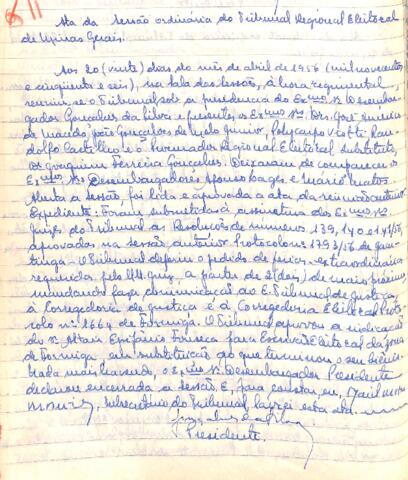 Ata da sessão ordinária do Tribunal Regional Eleitoral
de Minas Gerais.
Aos 20 (vinte) dias do mês de abril de 1956 (mil novecentos
e cinquenta e seis), na sala das sessões, à hora regimental,
reuniu-se o Tribunal sob a presidencia do Exmo Sr. Desembar-
gador Gonçalves da Silva e presentes os Exmos Srs. Drs. José Americo
de Macêdo, João Gonçalves de Melo Junior, Polycarpo Viotti, Ran-
dolfo Castilho e o Procurador Regional Eleitoral Substituto,
Joaquim Ferreira Gonçalves. Deixaram de comparecer os
Exmos Srs Desembargadores Afonso Lages e Mário Matos.
Aberta a sessão, foi lida e aprovada a ata da reunião anterior.
Expediente: Foram submetidas à assinatura dos Exmos Srs.
Juizes do Tribunal as Resoluções de numeros 139, 140 e 141/56,
aprovadas na sessão anterior. Protocolo nº 1793/56 de
O Tribunal deferiu o pedido de ferias extraordinárias
requerida pelo MM. Juiz, a partir de 2 (dois) de maio próximo
mandando fazer comunicação ao E. Tribunal de Justiça,
à Corregedoria de Justiça e à Corregedoria Eleitoral. Proto-
colo nº 1664 de Formiga. O Tribunal aprovou a indicação
do sr. Altair Epifânio Fonseca para Escrivão Eleitoral da zona
de Formiga, em substituição ao que terminou o seu biênio.
Nada mais havendo, o Exmo Sr. Desembargador Presidente
declarou encerrada a sessão. E, para constar, eu,
subsecretário do Tribunal, lavrei esta ata.
Presidente.